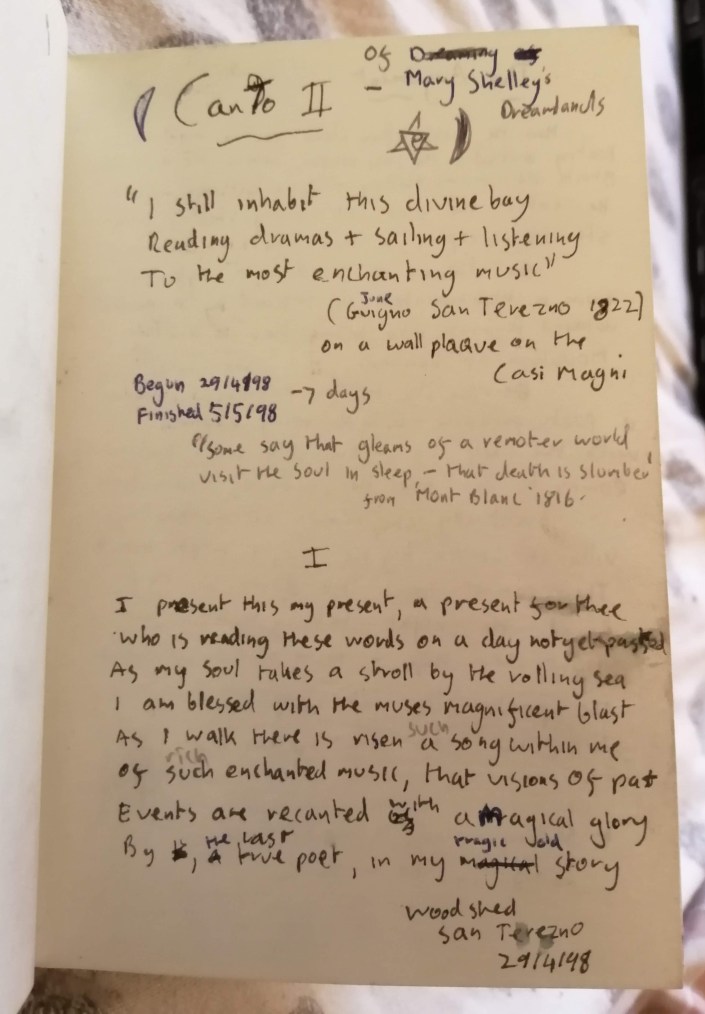 Of Dreaming of
Canto II - Mary Shelley's
Dreamlands
"I still inhabit this divine bay
Reading dramas + sailing + listening
To the most enchanting music"
June
(Guigno San Terezno 1822)
on a wall plaque on the
Casi Magni
Begun 29/4/98 - 7 days
Finished 5/5/98
"Some say that gleams of a remoter world
visit the soul in sleep, - that death is slumber"
from 'Mont Blanc' 1816.
I
I present this my present, a present for thee
who is reading these words on a day not yet passed
As my soul takes a stroll by the rolling sea
I am blessed with the muses magnificent blast
such
As I walk there is risen a song within me
rich
Of such enchanted music, that visions of past
Events are recanted with a magical glory
the last tragic old
By, a true poet, in my magical story
Woodshed
San Terezno
29/4/98